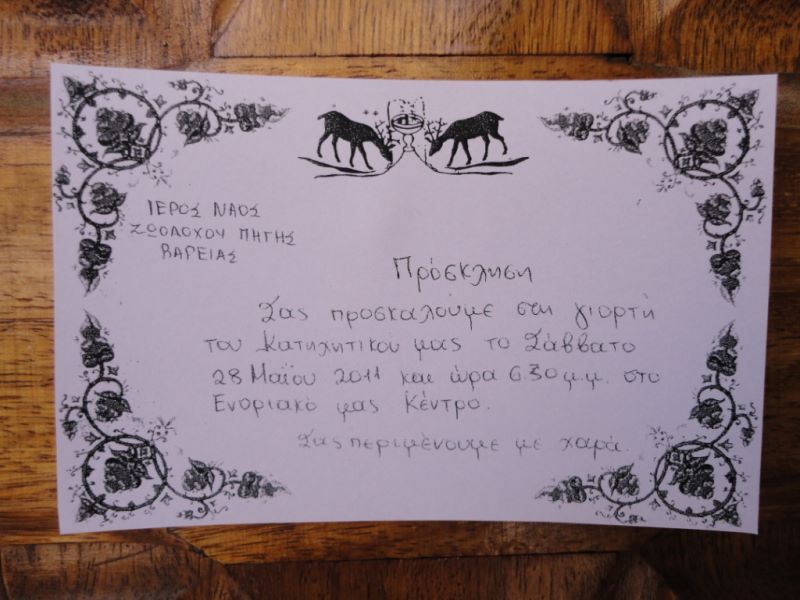 ΙΕΡΟΣ ΝΑΟΣ
ΖΩΟΔΟΧΟΥ ΠΗΓΗΣ
ΒΑΡΕΙΑΣ
Πρόσκληση
Σας προσκαλούμε στη γιορτή
του Κατηχητικού μας το Σάββατο
28 Μαΐου 2011 και ώρα 6.30 μ.μ. στο
Ενοριακό μας Κέντρο.
Σας περιμένουμε με χαρά.